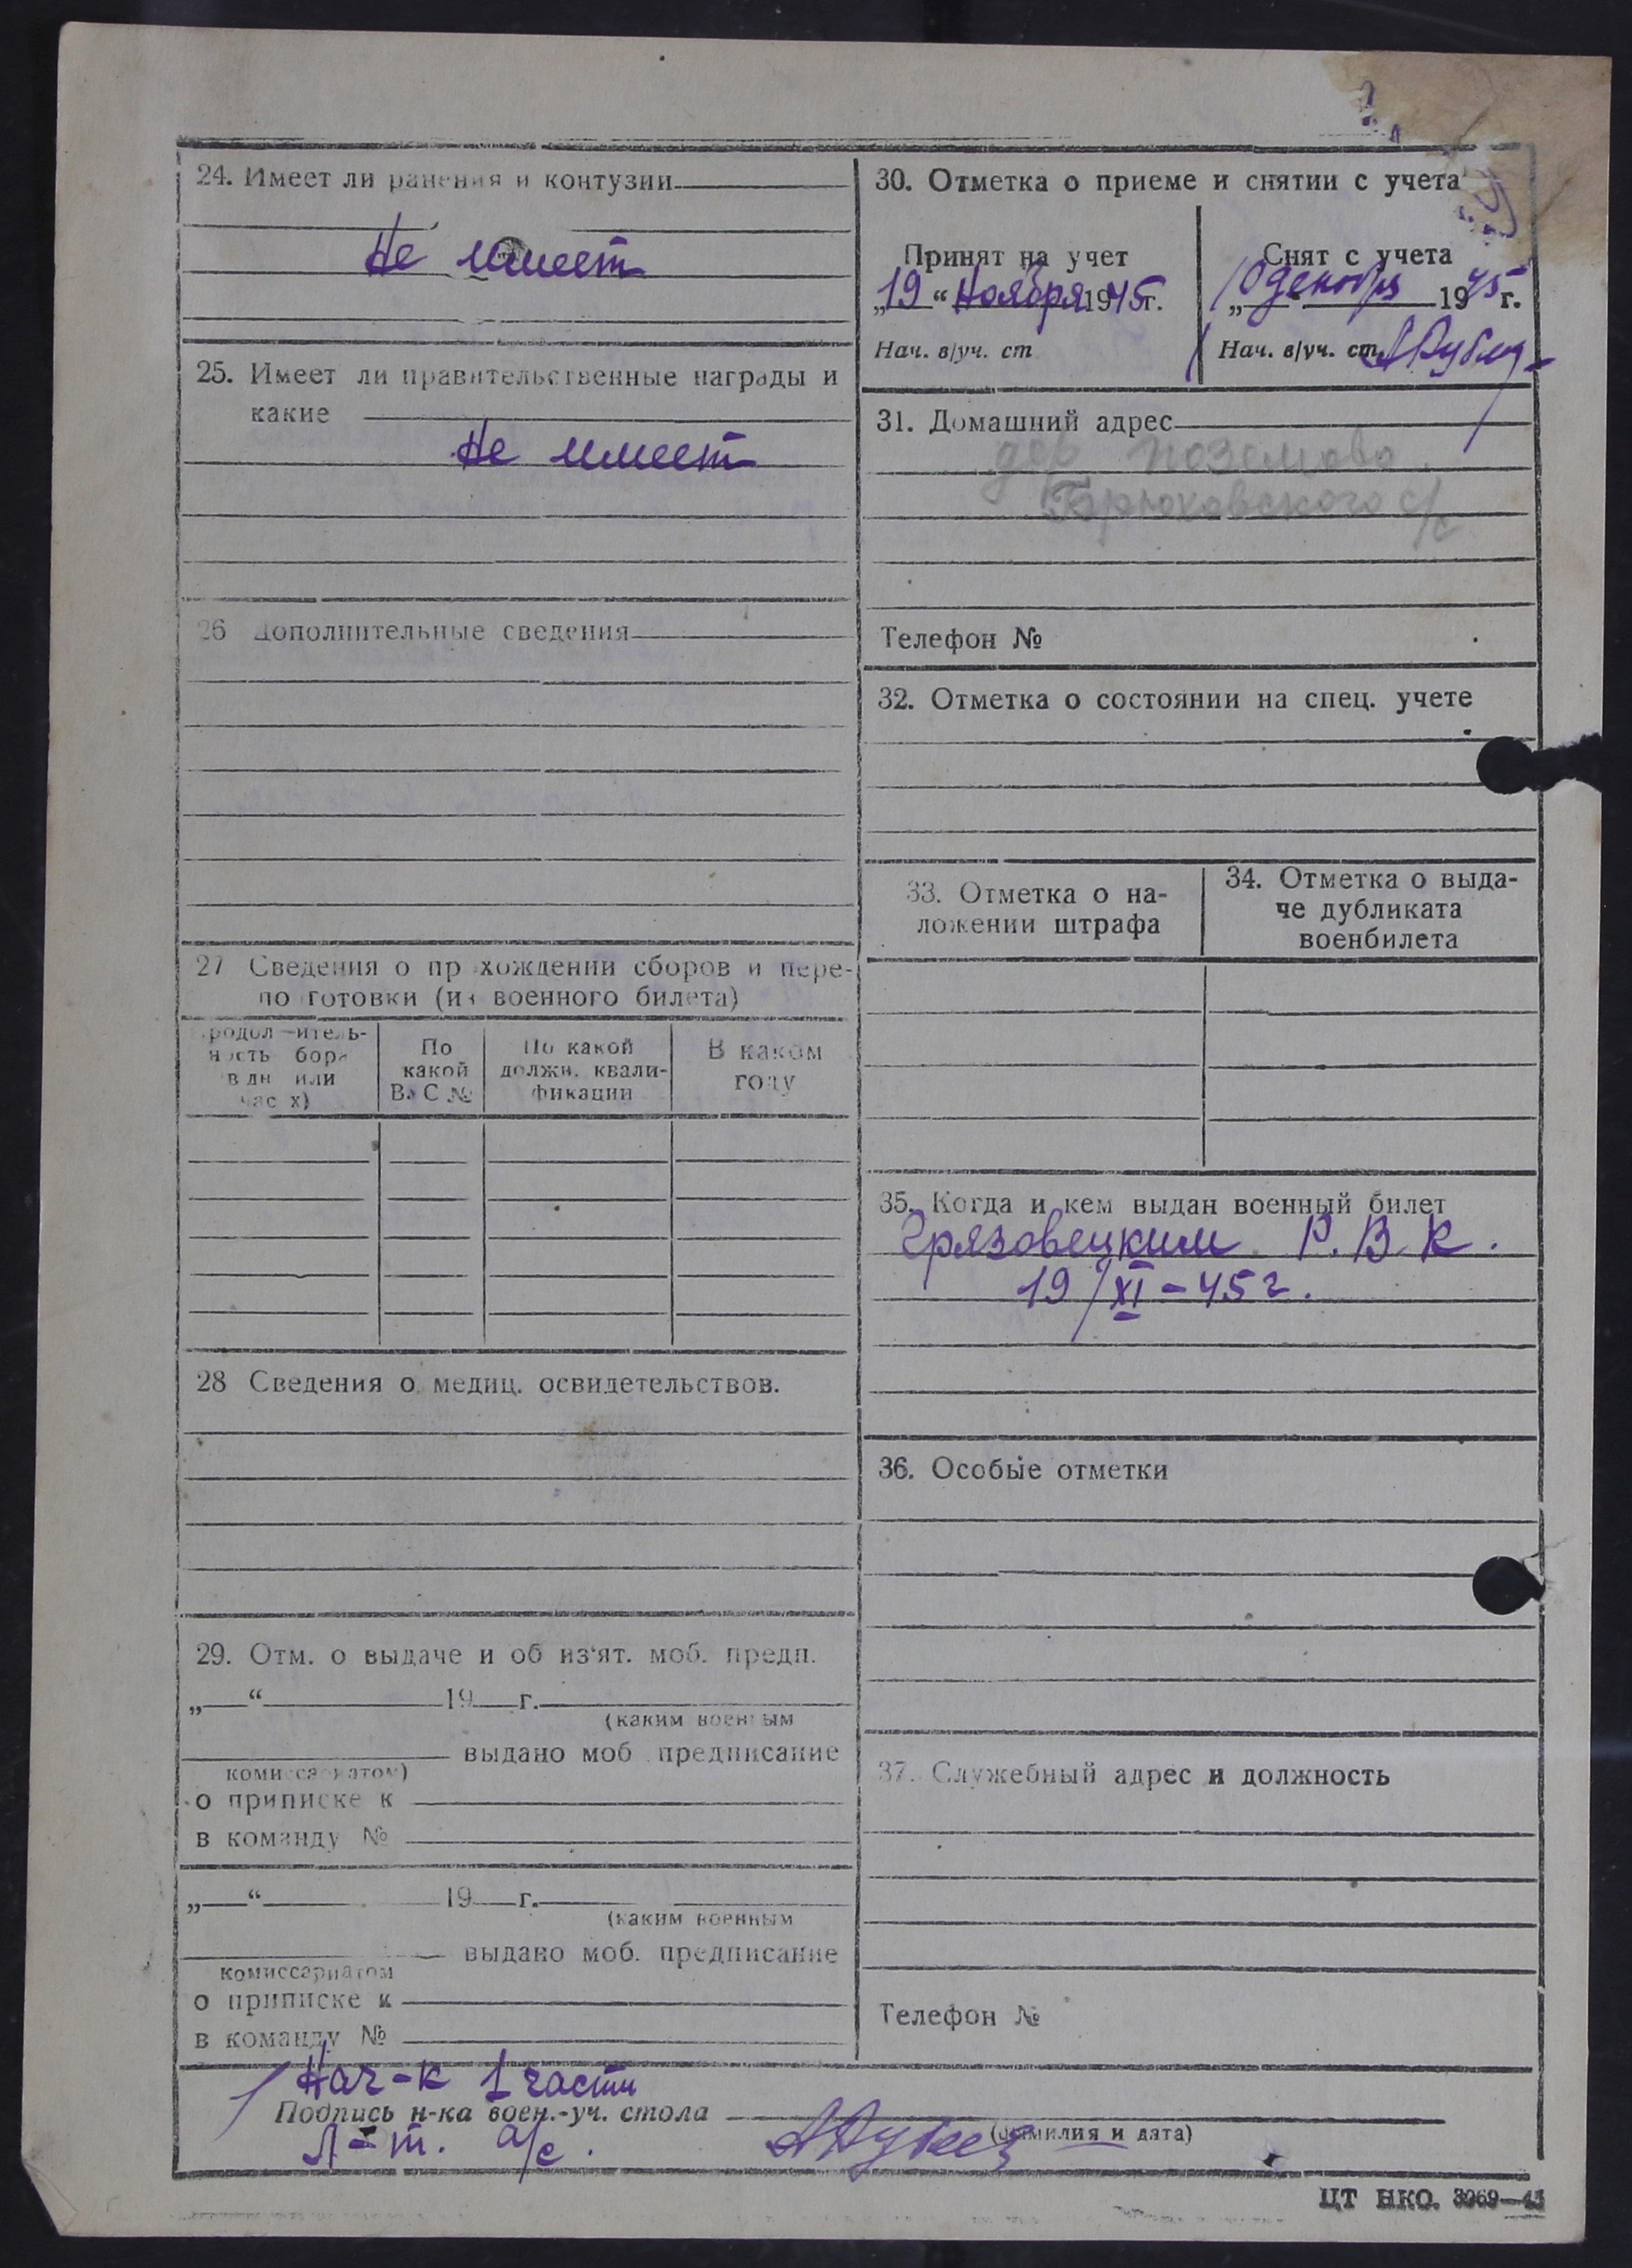 24. Имеет ли ранения и контузии
Не имеет
25. Имеет ли правительственные награды и
какие
Не имеет
26 Дополнительные сведения
27 Сведения о пр хождении сборов и пере-
по готовки (из военного билета)
родол -итель-
ность бора
в дн или
час х)
По
какой
ВУС №
По какой
должн. квали-
фикации
В каком
году
28 Сведения о медиц. освидетельствов.
29. Отм. о выдаче и об из'ят. моб. предп.
„ “ 19 г.
(каким военным
выдано моб предписание
комиссариатом)
о приписке к
в команду №
„ “ 19 г.
(каким военным
выдано моб. предписание
комиссариатом
о приписке к
в команду №
30. Отметка о приеме и снятии с учета
Принят на учет
„19“ Ноября 1945г.
Нач. в/уч. ст
Снят с учета
„10 декабря 1945 г.
Нач. в/уч. ст.
31. Домашний адрес
дер Поземово
с/с
Телефон №
32. Отметка о состоянии на спец. учете
33. Отметка о на-
ложении штрафа
34. Отметка о выда-
че дубликата
военбилета
35. Когда и кем выдан военный билет
Грязовецким Р.В.К.
19/XI-45г.
36. Особые отметки
37. Служебный адрес и должность
Телефон №
Нач-к 1 части
Подпись н-ка воен.-уч. стола
(фамилия и дата)
Л-т. а/с.
ЦТ НКО. 3069—43